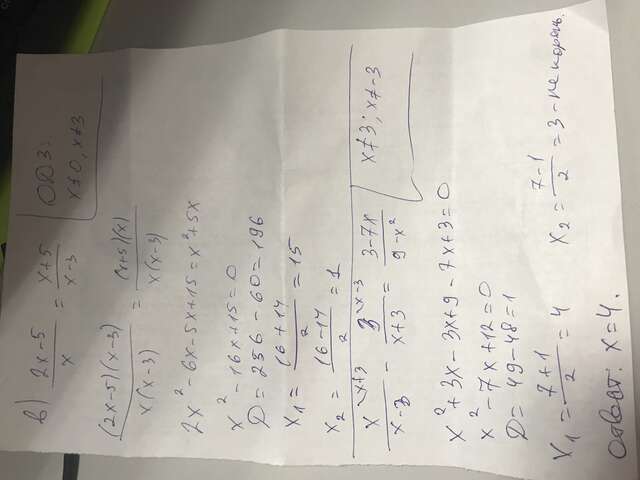 в) (2x-5)/x = (x+5)/(x-3)
ОДЗ:
x≠0, x≠3
(2x-5)(x-3)/x(x-3) = (x+5)(x)/x(x-3)
2x² - 6x - 5x + 15 = x² + 5x
x² - 16x + 15 = 0
D = 256 - 60 = 196
x₁ = (16+14)/2 = 15
x₂ = (16-14)/2 = 1
x\x+3/(x-3) - 3\x-3/(x+3) = (3-7x)/(9-x²)
x≠3; x≠-3
x² + 3x - 3x + 9 - 7x + 3 = 0
x² - 7x + 12 = 0
D = 49 - 48 = 1
x₁ = (7+1)/2 = 4
x₂ = (7-1)/2 = 3 - не корень.
Ответ: x = 4.